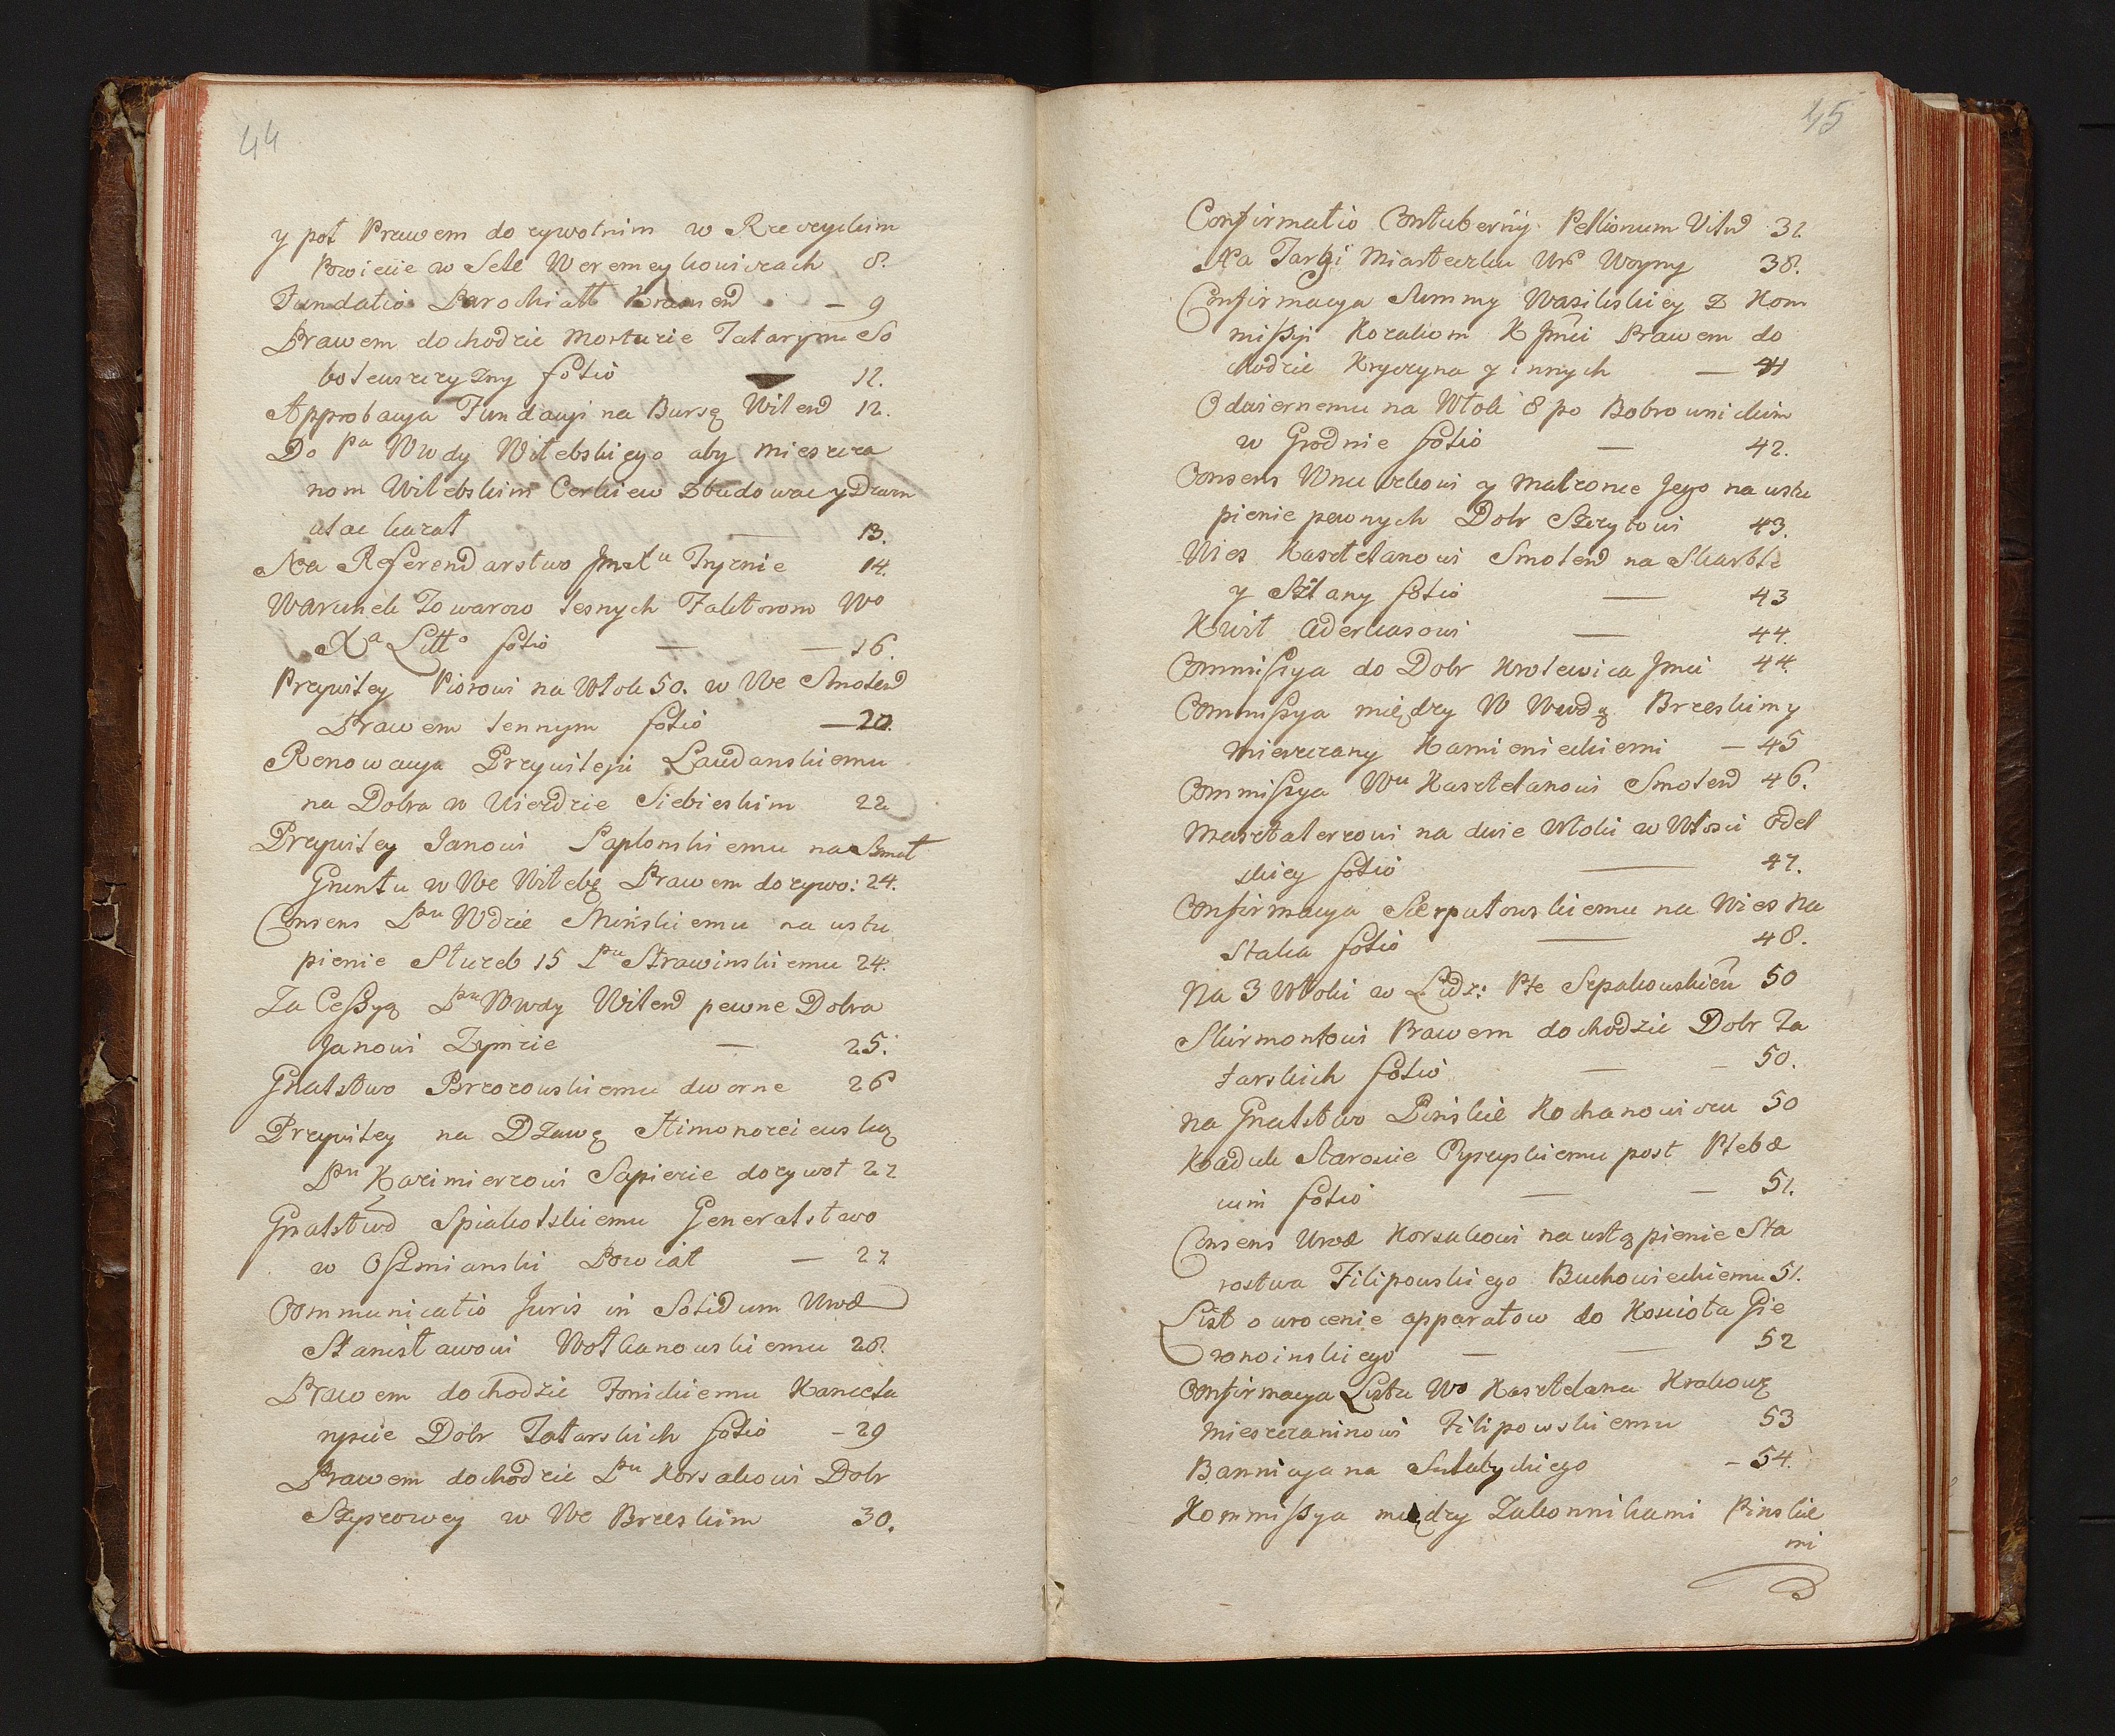 44
y pot Prawem dozywotnim w Rzeczyckim
Powiecie w Sele Weremeykowiczach 8.
Fundatio Parochiatt Kramend — 9
Prawem dochodzie Morturie Tatarzyna So
boteuszczyzny folio 12.
Approbacya Fundacyi na Bursę Wilend 12.
Do Pa Wwdy Witebskiego aby miescza
nom Witebskim Cerkiew zbudowac y Dzwm
atac kazat — 13.
Na Referendarstwo Jmstu Tryznie 14.
Warunek Towarow lesnych Faktorom Wo
Xa Litto folio — — 16.
Przywiley Piorowi na Wlok 50. w We Smolend
Prawem lennym folio — 20.
Renowacya Przywileju Laudanskiemu
na Dobra w Uiezdzie Siebieskim 22
Przywiley Janowi Paplonskiemu na Szmat
Gruntu w We Witebę Prawem dozywo: 24.
Consens Pnu Wdzie Minskiemu na ustu
pienie Sluzeb 15 Pnu Strawinskiemu 24.
Za Cessyą Pnu Wwdy Wilend pewne Dobra
Janowi Zymzie — 25.
Gnalstwo Brzozowskiemu dworne 26
Przywiley na Dzawę Aimonorcieuską
Pnu Kazimierzowi Sapiezie dozywot 27
Gnalstwo Spiakolskiemu Generalstwo
w Oszmianski Powiat — 27
Communicatio Juris in Solidum Urod
Stanislawowi Wolkanowskiemu 28.
Prawem dochodzie Fonickiemu Kancela
ryscie Dobr Tatarskich folio — 29
Prawem dochodzie Pnu Korsakowi Dobr
Szyszowey w We Brzeskim 30.
45
Confirmatio Contubernij Pellionum Vilnd 32
Na Targi Miasteczku Uro Woyny 38.
Confirmacya Summy Wasiliskiey z Kom
missyi Kozakom K Jmci Prawem do
chodzie Kryczyna y innych — 41
Odwiernemu na Wlok 8 po Bobrownickim
w Grodnie folio — 42.
Consens Wnuczkowi y Malzonce Jego na ustu
pienie pewnych Dobr Szczytowi 43.
Wies Kasztelanowi Smolend na Skarble
y Szlany folio — 43
Kwit Aderkasowi — 44.
Commissya do Dobr Krolewica Jmci 44.
Commissya między W Wwdą Brzeskim y
Miesczany Kamienieckiemi — 45
Commissya Wu Kasztelanowi Smolend 46.
Masztalerzowi na dwie Wloki w Wlosci Odel
skiey folio — 47.
Confirmacya Szerputowskiemu na Wies Na
Stalia folio — 48.
Na 3 Wloki w Lidz: Pte Szpakowskiem 50
Skirmontowi Prawem dochodzie Dobr Ta
tarskich folio — — 50.
Na Gnalstwo Pinskie Kochanowiczu 50
Kaduk Staroscie Pyzyskiemu post Plebæ
um folio — — 51.
Consens Urod Korsakowi na ustąpienie Sta
rostwa Filipowskiego Buchowieckiemu 51.
List o wrocenie apparatow do Kosciola Gie
ranoinskiego — — 52
Confirmacya Listu Wo Kasztelana Krakowę
Miesczaninowi Filipowskiemu 53
Bannicya na Sulatyckiego — 54.
Kommissya między Zakonnikami Pinskie
mi